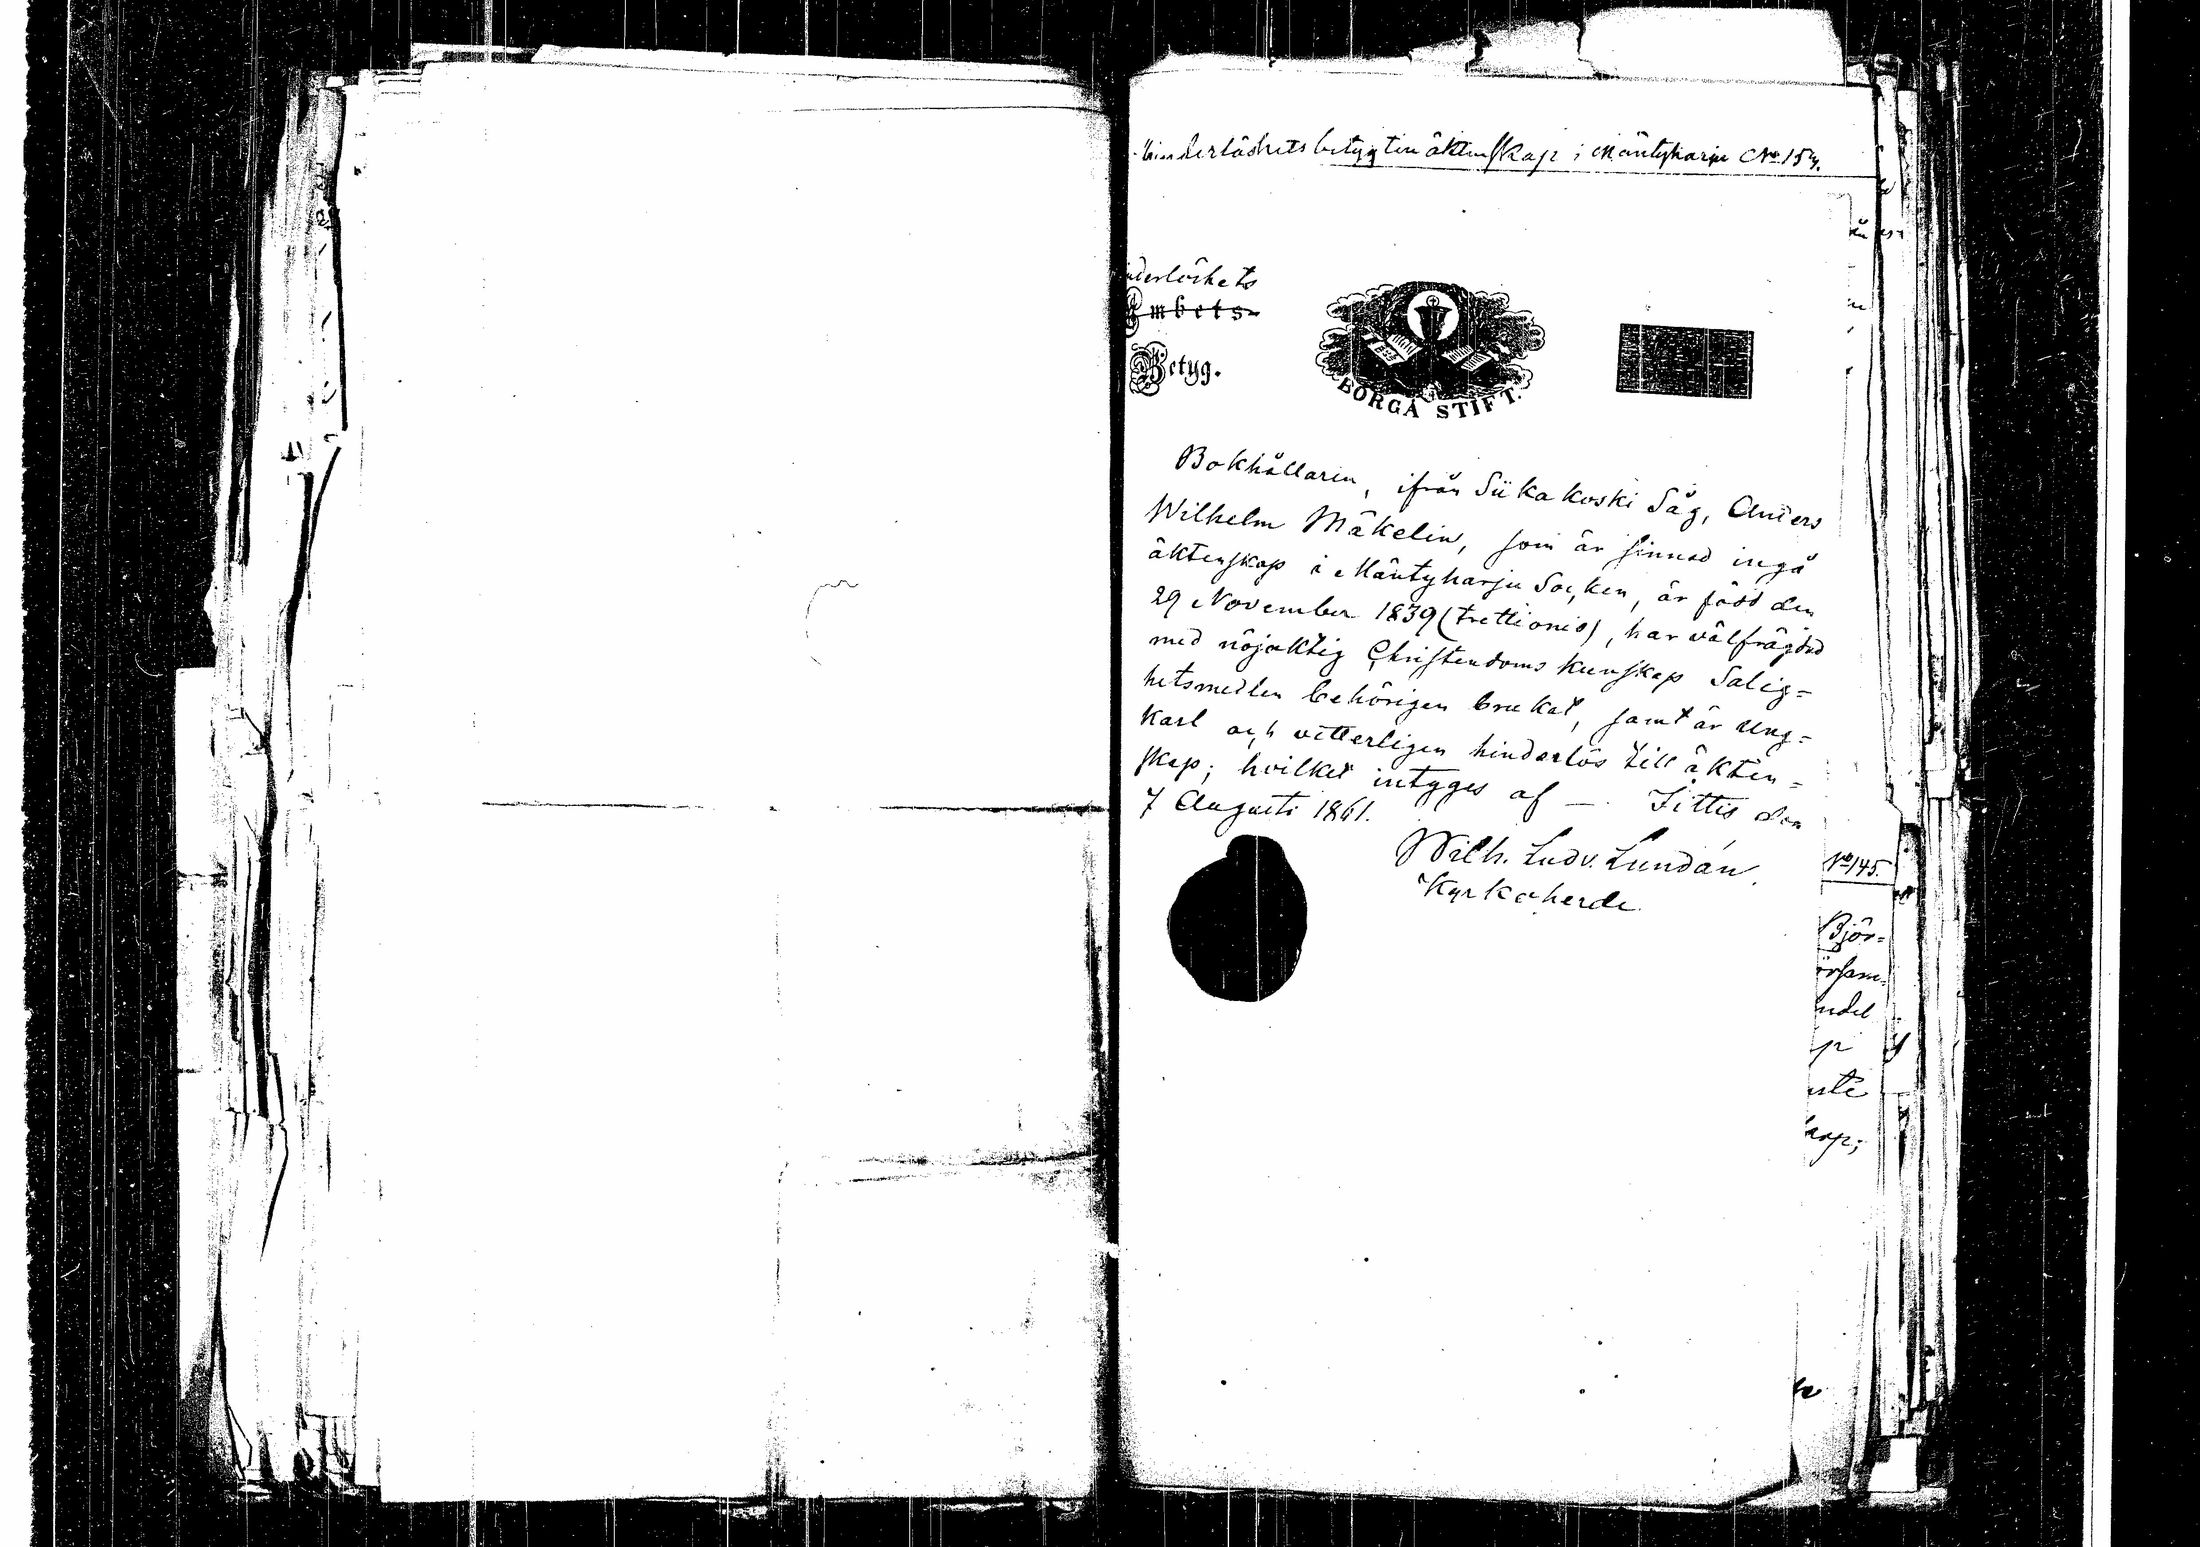 hinderlöshets betyg till äktenskap i Mäntyharju No 154.
nderlöshets
Embets-
Betyg.
BORGÅ STIFT.
Bokhållaren, ifrån Siikakoski Såg, Anders
Wilhelm Mäkelin, som är sinnad ingå
äktenskap i Mäntyharju Socken, är född den
29 November 1839 (trettionio), har välfrägdad
med nöjaktig Christendoms kunskap Salig=
hetsmedlen behörigen brukat, samt är Ung=
karl och vetterligen hinderlös till äkten=
skap; hvilket intygges af — Jittis den
7 Augusti 1861.
Wilh. Ludv. Lundán.
Kyrkoherde
No 145.
Björ=
ndel